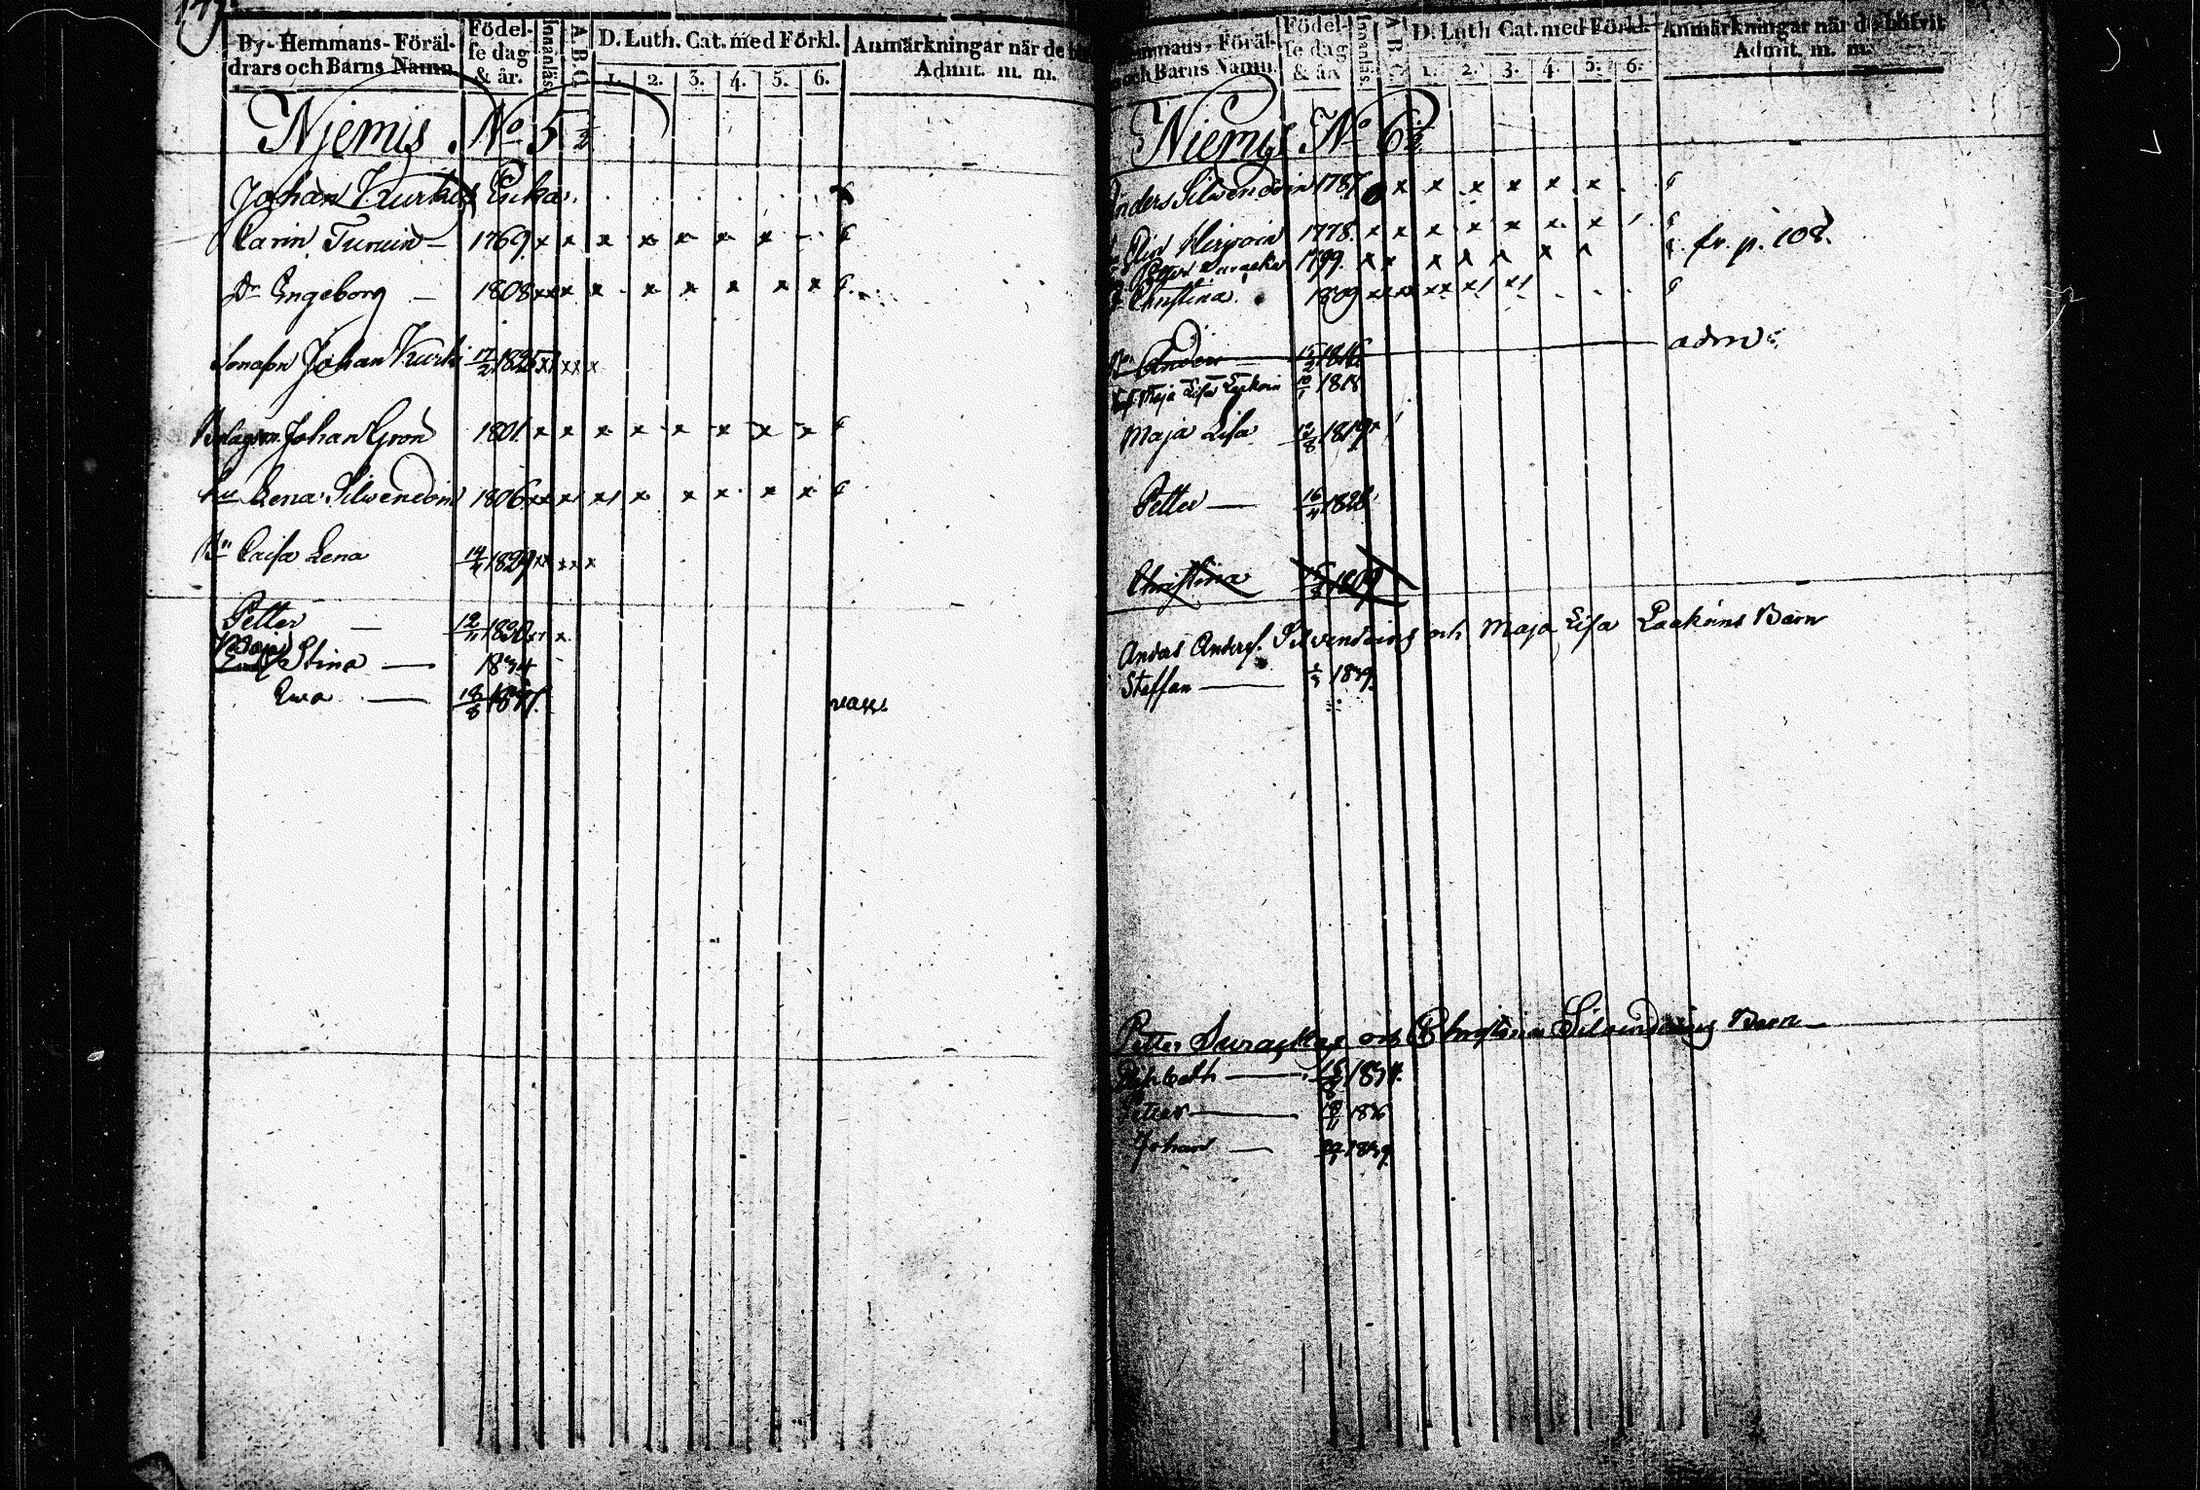 147
By- Hemmans- Föräl-
drars och Barns Namn
Födel-
se dag
& år.
Innanläs.
A B C
D. Luth. Cat. med Förkl.
1. 2. 3. 4. 5. 6.
Anmärkningar när de
Admit. m. m.
Njemis. No. 5 ½
Johan Kurkis Enka.
Carin Turuin — 1769. x x x x x x x
Dr Engeborg — 1808 xxx x x x x x x
Sonason Johan Kurki 17/2 1825
Bolagsm. Johan Gron 1801. x x x x x x x x
hu Lena Silwendoin 1806 xx x x x x x x x
Bn Caisa Lena 1829
Petter — 12/11
Maja Stina — 1834
Ewa — 18/8
vacc.
Hemmans- Föräl-
och Barns Namn.
Födel-
se dag
& år.
Innanläs.
A B C
D. Luth Cat. med Förkl.
1. 2. 3. 4. 5. 6.
Anmärkningar när de blifvit
Admit. m. m.
Niemis No 6 ½
Anders Silwendoin 1787. x x x x x x
Elis 1778. x x x x x x x
Petter Surackar 1799. x x x x x x x fr. p. 108.
Christina 1809
Anders 15/2 1816 adm.
Maja Lisa 10/1 1818
Maja Lisa 12/8 1819
Petter — 16/4 1828
Christina 1809
Anders Anders. Silvendoins och Maja Lisa Laakoins Barn
Staffan — 1839.
Petter Surackas och Christina Silvendoins Barn
Elisbeth — 1834.
Petter — 1836
Johan — 1839